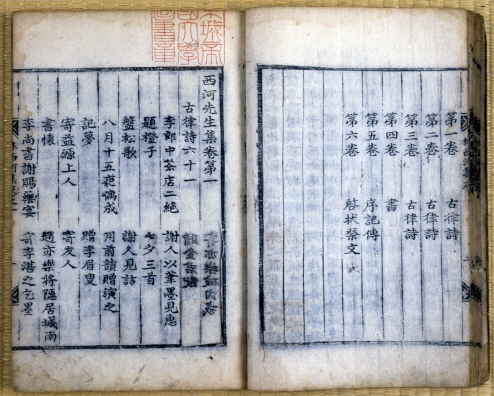 第一卷　古律詩
第二卷　古律詩
第三卷　古律詩
第四卷　書
第五卷　序記傳
第六卷　啓狀祭文
京城帝
國大學
圖書章
西河先生集卷第一
古律詩六十一
李郎中茶店二絶　謝人以筆墨見惠
題橙子　七夕三首
盤松歌　謝人見訪
八月十五夜偶成　用前韻贈演之
記夢　贈李眉叟
寄益源上人　寄友人
書懷　題亦樂將隱居城南
李尚書謝賜藥宴　寄李湛之乞墨